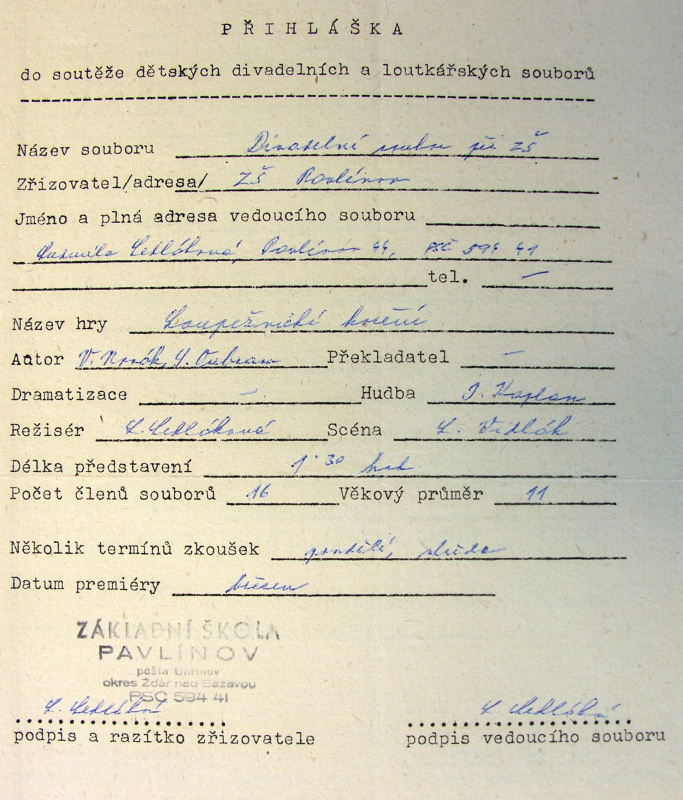 PŘIHLÁŠKA
do soutěže dětských divadelních a loutkářských souborů
Název souboru Divadelní soubor při ZŠ
Zřizovatel/adresa/ ZŠ Pavlínov
Jméno a plná adresa vedoucího souboru
Ludmila Sedláková, Pavlínov 44, PSČ 594 41
tel. —
Název hry Loupežnické koření
Autor V. Novák, Překladatel —
Dramatizace — Hudba J. Kaplan
Režisér L. Sedláková Scéna L. Vidlák
Délka představení 1.30 hod
Počet členů souborů 16 Věkový průměr 11
Několik termínů zkoušek pondělí, středa
Datum premiéry březen
ZÁKLADNÍ ŠKOLA
PAVLÍNOV
pošta Uhřínov
okres Žďár nad Sázavou
PSČ 594 41
L. Sedláková L. Sedláková
podpis a razítko zřizovatele podpis vedoucího souboru